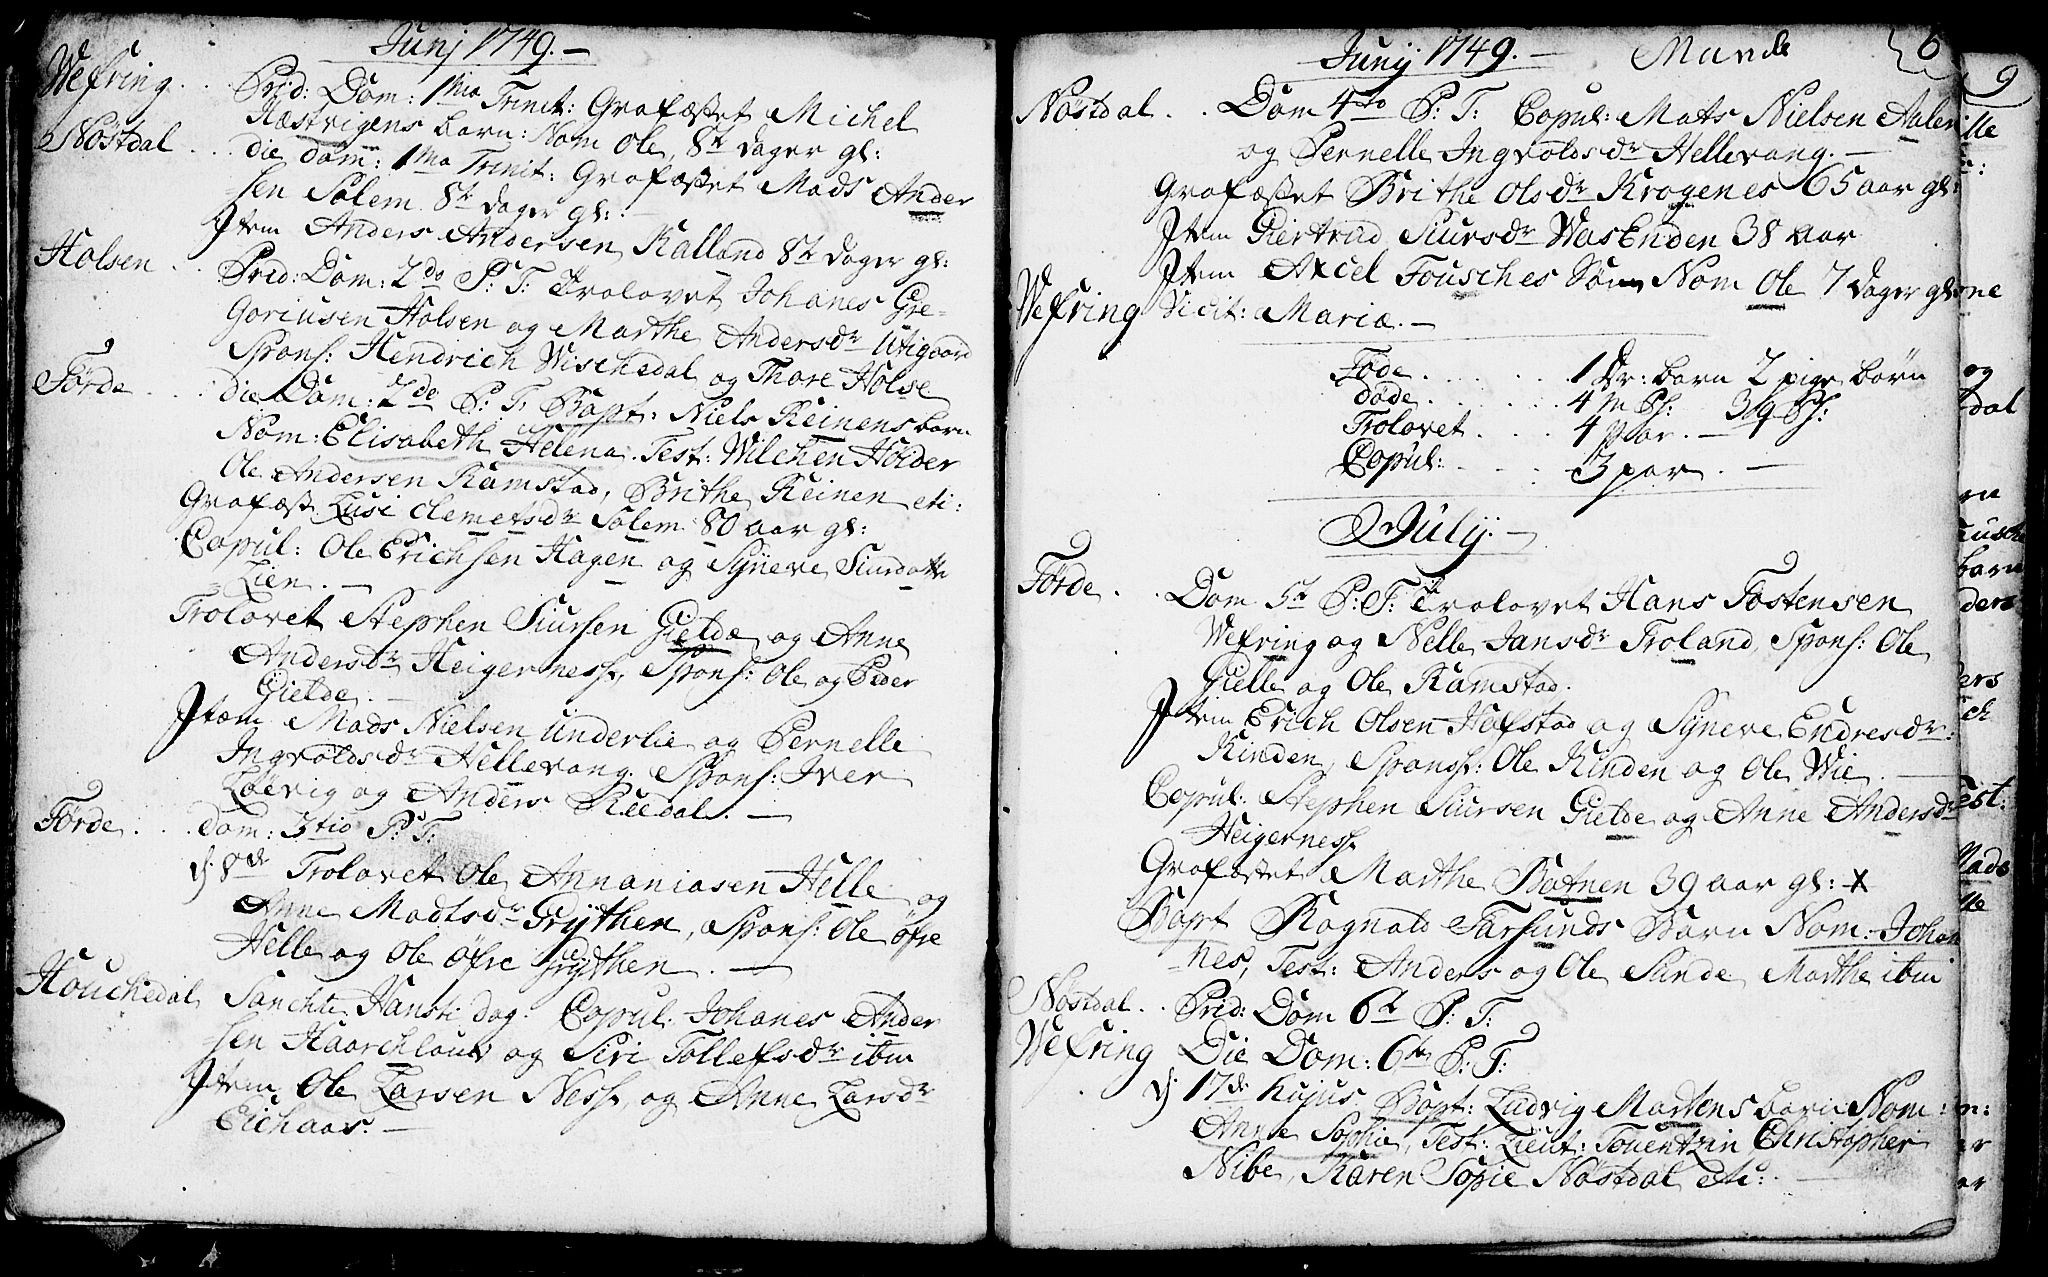 Junj 1749. —
Wefring . . Prid: Dom: 1ma Trinit: Grafæstet Michel
Næstvigens barn: Nom Ole, 8te dager gl:
Nöstdal . . . die dom: 1ma Trinit: Grafæstet Mads Ander
sen Solem 8te dager gl:
Jtem Anders Andersen Kalland 8te dager gl:
Holsen . . Prid: Dom: 2do P: T: Trolovet Johanes Gre-
goriusen Holsen og Marthe Andersdr Utigaard
Spons: Hendrich Wischedal og Thore Holse
Förde . . : die Dom: 2do P: T: Bapt: Niels Reinens barn
Nom: Elisabeth Helena. Test: Wilchen Holder
Ole Andersen Ramstad, Brithe Reinen etc:
Grafæst Lusi Clemetsdr Solem 80 aar gl:
Copul: Ole Erichsen Hagen og Syneve Siurdatte
Lien. —
Trolovet Stephen Siursen Gielde og Anne
Andersdr Heigerness, Spons: Ole og Peder
Gielde. —
Jtem Mads Nielsen Underlie og Pernelle
Ingvoldsdr Hellevang. Spons: Iver
Löevig og Anders Ruedal. —
Förde . . . Dom: 3tio P: T:
d: 8de Trolovet Ole Annaniasen Helle og
Anne Madtsdr Grythen, Spons: Ole öfre
Helle og Ole Öfre Grythen. —
Houchedal Sanchte Hansti dag. Copul: Johanes Ander
sen Haarchlouv og Siri Tollefsdr ibm
Jtem Ole Larsen Ness, og Anne Larsdr
Eichaas. —
Junij 1749. — Munde 6
Nöstdal . . Dom 4to P: T: Copul: Mats Nielsen
og Pernelle Ingvoldsdr Hellevang. —
Grafæstet Brithe Olsdr Krogenes 65 aar gl:
Jtem Giertrud Siursdr Wasenden 38 aar
Jtem Axcel Fousches Sön Nom Ole 7 dager gl:
Wefring Vicit: Mariæ. —
Föde . . . . . . 1 Dr: barn 2 pige börn
döde . . . . . . 4 M Sl: 3 q Sl:
Trolovet . . . . 4 Par. —
Copul: . . . . 3 par. —
Julij. —
Förde . . Dom 5te P: T: Trolovet Hans Tostensen
Wefring og Nelle Jansdr Troland, Spons: Ole
Gielle og Ole Ramstad.
Jtem Erich Olsen Hafstad og Syneve Endresdr:
Kinden, Sponss: Ole Kinden og Ole Wie. —
Copul: Stephen Siursen Gielde og Anne Andersdr
Heigerness
Grafæstet Marthe Botnen 39 aar gl: X
Bapt Ragnald Farsunds Barn Nom: Johan
nes, Test: Anders og Ole Sunde Marthe ibm
Nöstdal . . Prid: Dom 6te P: T:
Wefring Die Dom: 6te P: T:
d: 17de hujus Bapt: Ludvig Martens barn Nom:
Anne Sophie, Test: Lieut: Touentzin Christopher
Nibe, Karen Sopie Nöstdal etc: —
9